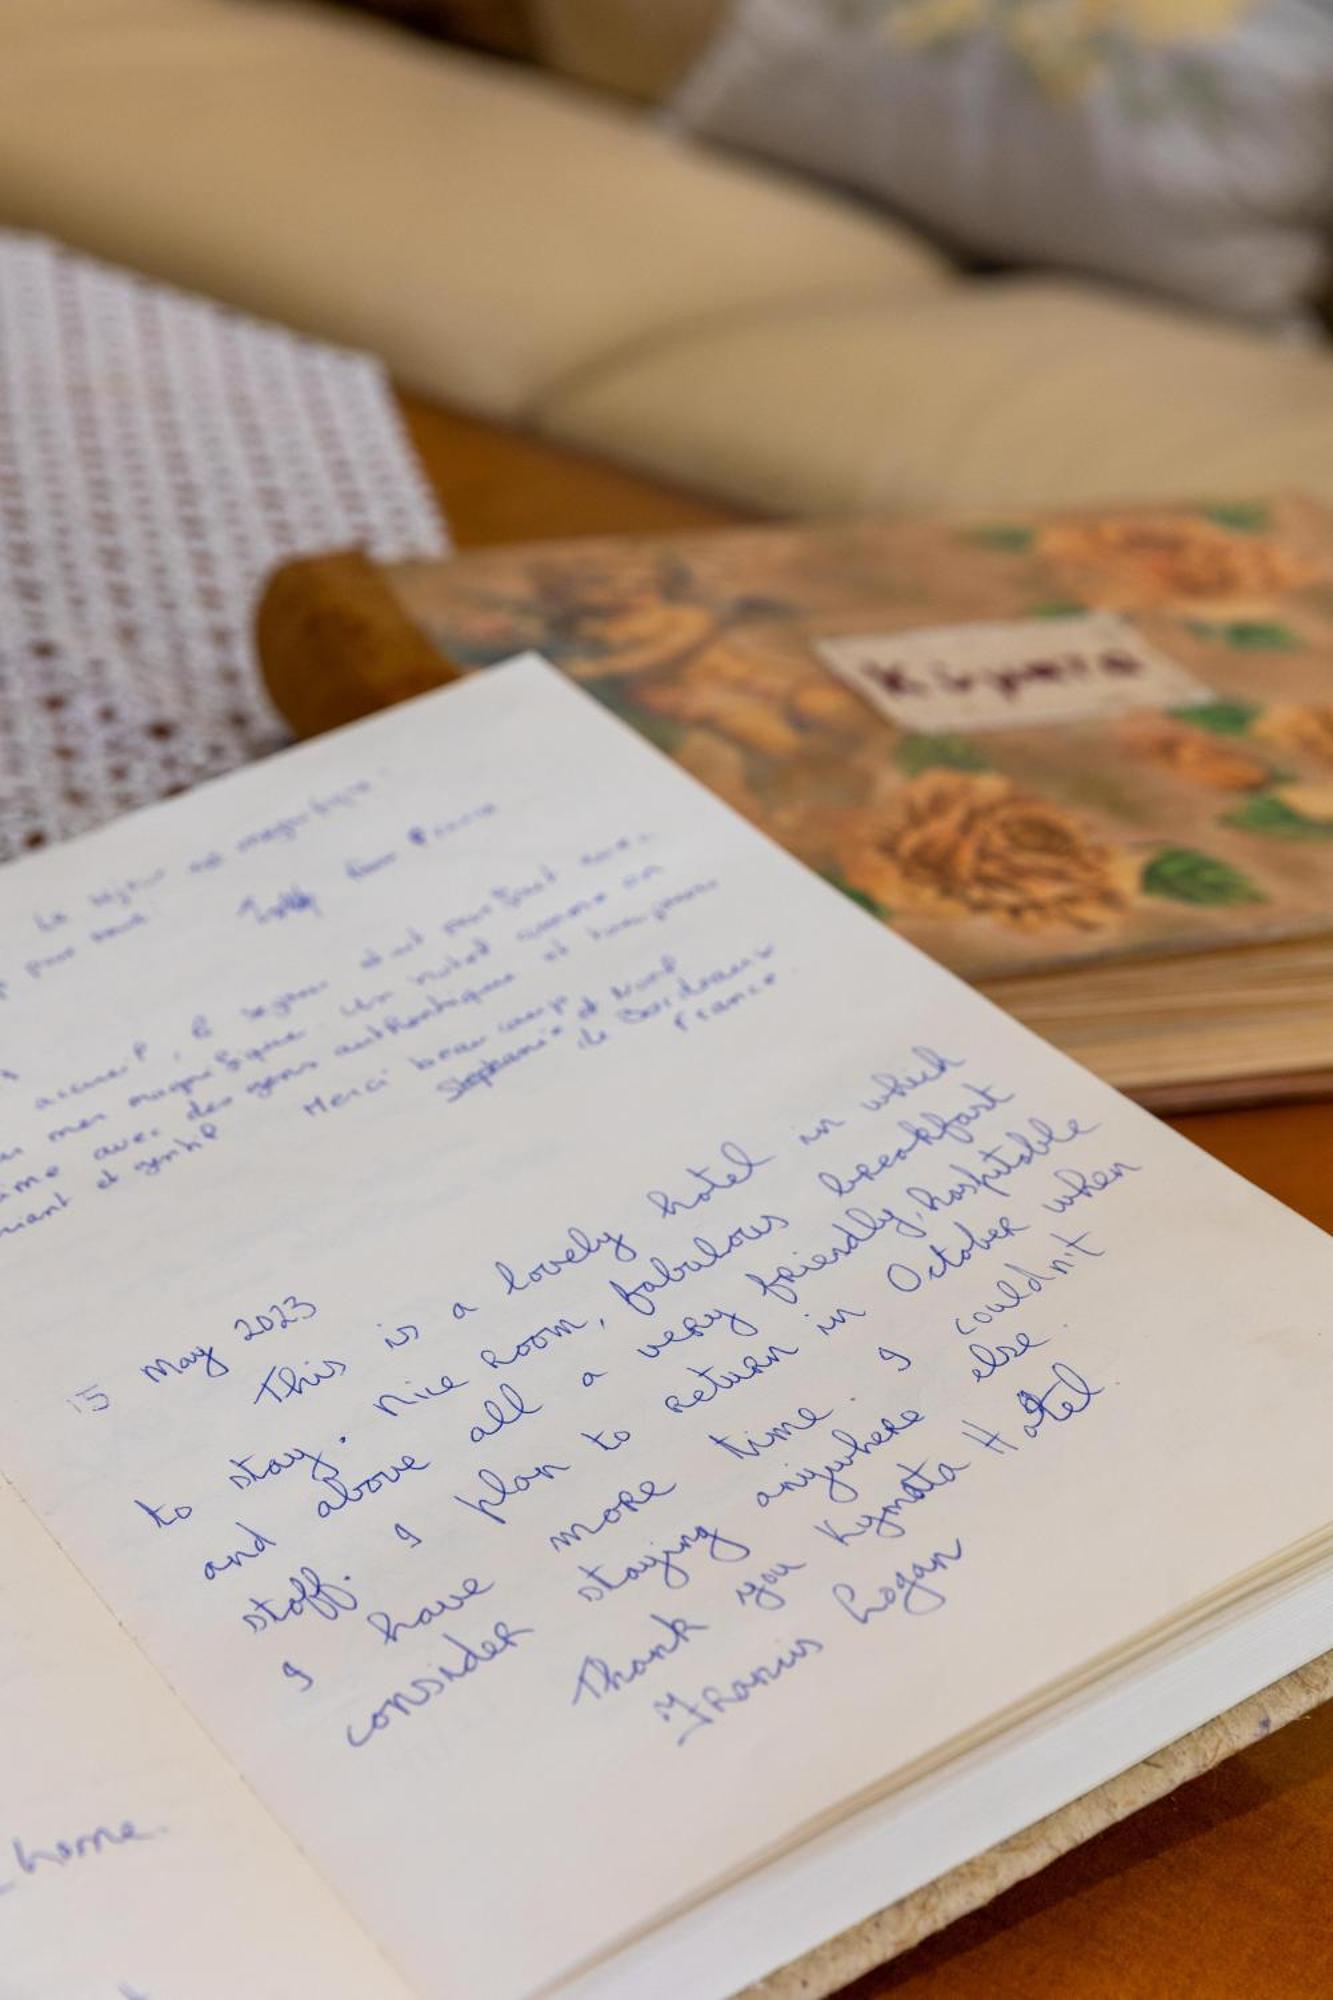 Le séjour est magnifique
pour nous
France
accueil, le séjour était parfait avec
magnifique. Un hotel comme on
aime avec des gens authentiques et toujours
riant et gentil Merci beaucoup
Stéphanie et
de Bordeaux
France
15 May 2023
This is a lovely hotel in which
to stay. Nice room, fabulous breakfast
and above all a very friendly, hospitable
staff. I plan to return in October when
I have more time. I couldn't
consider staying anywhere else.
Thank you Kymata Hotel.
Francis Logan
home.
Κύματα